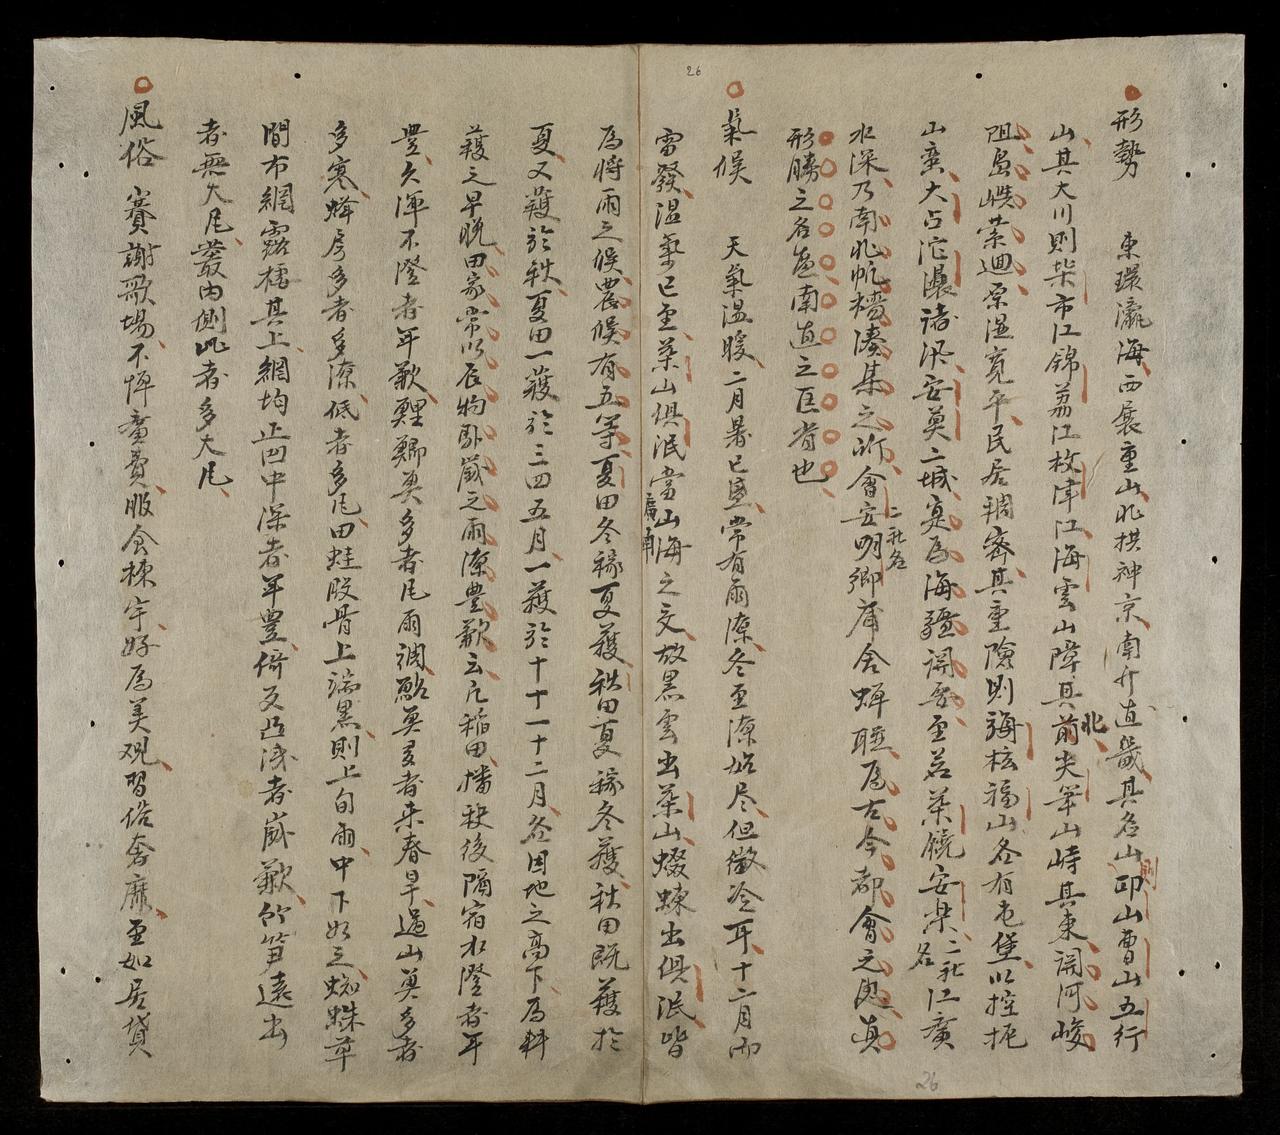 形勢 東環瀛海西展重山北拱神京南介直畿其名山則印山曹山五行
山其大川則柴市江錦荔江枚津江海雲山障其北前尖筆山峙其東開河峻
阻島嶼縈迴原濕寬平民居稠密其重險則海松福山各有屯堡以控扼
山蛮大占沱㶞諸汛安奠二城寔為海疆關要至若葉饒安樂二社名江廣
水深乃南北帆檣湊集之所會安明鄉二社名庸舍蟬聯為古今都會之地真
形勝之名區南直之巨省也
氣候 天氣温暖二月暑已盛常有雨潦冬至潦始尽但微冷耳十二月而
雷發温氣已至茶山俱泯屬南當山海之交故黑雲出茶山蝃蝀出俱泯皆
為將雨之候農候有五等夏田冬稼夏穫秋田夏稼冬穫秋田既穫於
夏又穫於秋夏田一穫於三四五月一穫於十十一十二月各因地之高下為料
穫之早晚田家常以辰物卧歲之雨潦豊歉云凡稲田播秧後隔宿水澄者年
豊久渾不澄者年歉鯉鯽魚多者尾雨調鮎魚多者来春旱過山魚多者
多寒蜂房多者多潦低者多凡田蛙股骨上端黒則上旬雨中下如之蜘蛛草
間布網露檯其上網均正凹中深者年豊倚反凸浅者歲歉竹笋遠出
者無大尾叢内側出者多大尾
風俗 賽謝歌場不憚虛費服食棟宇好為美观習俗奢靡至如居貨
26
26